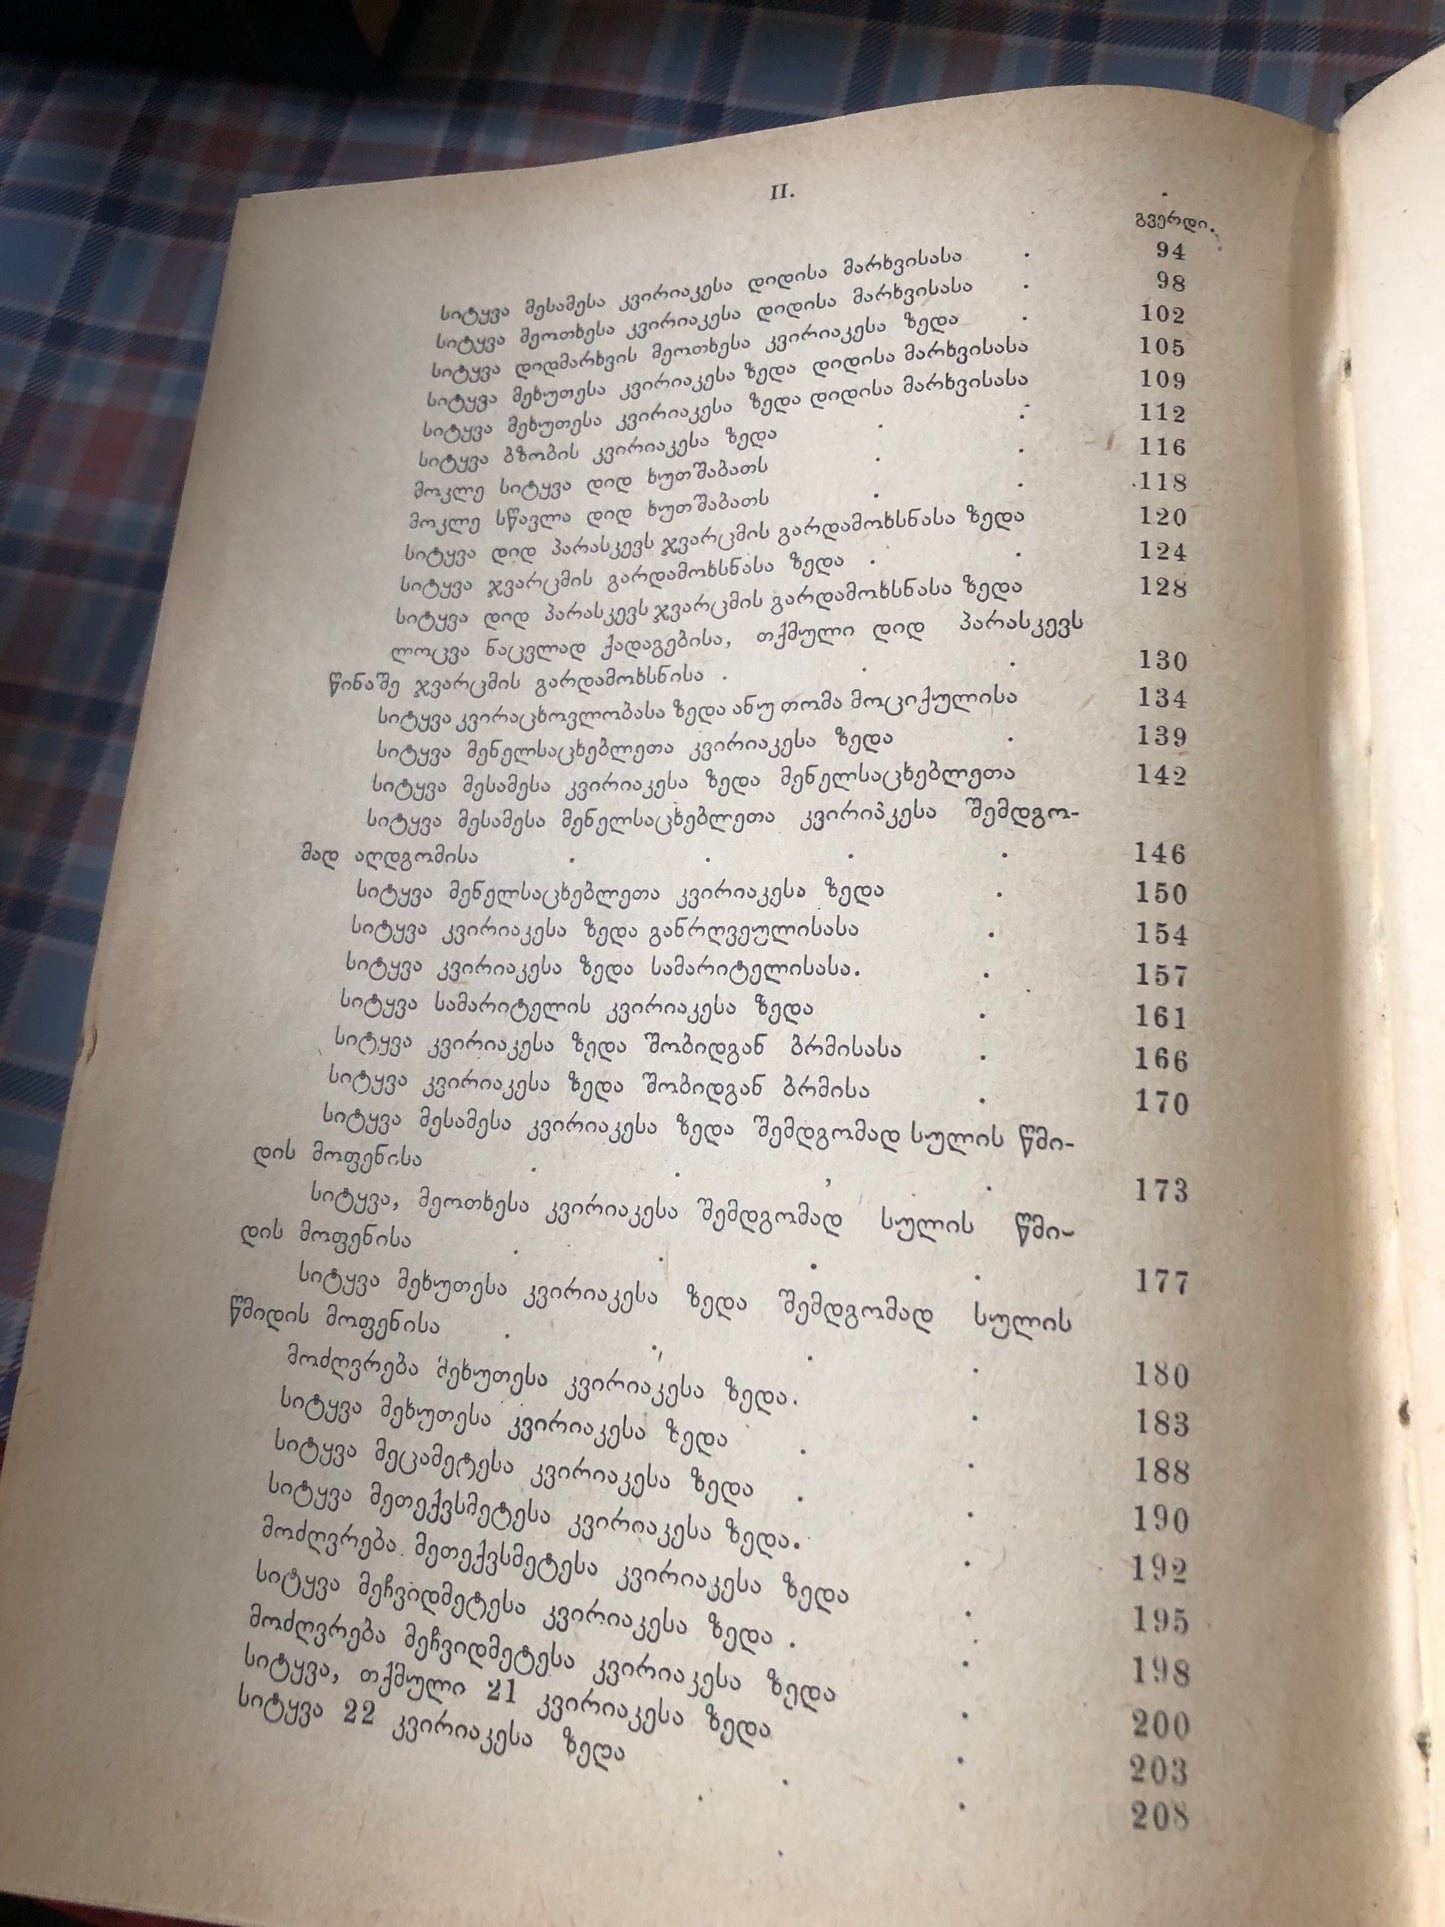 II.
გვერდი.
სიტყვა მესამესა კვირიაკესა დიდისა მარხვისასა . 94
სიტყვა მეოთხესა კვირიაკესა დიდისა მარხვისასა . 98
სიტყვა დიდმარხვის მეოთხესა კვირიაკესა ზედა . 102
სიტყვა მეხუთესა კვირიაკესა ზედა დიდისა მარხვისასა 105
სიტყვა მეხუთესა კვირიაკესა ზედა დიდისა მარხვისასა 109
სიტყვა ბზობის კვირიაკესა ზედა . . 112
მოკლე სიტყვა დიდ ხუთშაბათს . . 116
მოკლე სწავლა დიდ ხუთშაბათს . . 118
სიტყვა დიდ პარასკევს ჯვარცმის გარდამოხსნასა ზედა 120
სიტყვა ჯვარცმის გარდამოხსნასა ზედა . . 124
სიტყვა დიდ პარასკევს ჯვარცმის გარდამოხსნასა ზედა 128
ლოცვა ნაცვლად ქადაგებისა, თქმული დიდ პარასკევს
წინაშე ჯვარცმის გარდამოხსნისა . . . 130
სიტყვა კვირაცხოვლობასა ზედა ანუ თომა მოციქულისა 134
სიტყვა მენელსაცხებლეთა კვირიაკესა ზედა . 139
სიტყვა მესამესა კვირიაკესა ზედა მენელსაცხებლეთა 142
სიტყვა მესამესა მენელსაცხებლეთა კვირიპკესა შემდგო-
მად აღდგომისა . . . . 146
სიტყვა მენელსაცხებლეთა კვირიაკესა ზედა . 150
სიტყვა კვირიაკესა ზედა განრღვეულისასა . 154
სიტყვა კვირიაკესა ზედა სამარიტელისასა. . 157
სიტყვა სამარიტელის კვირიაკესა ზედა . 161
სიტყვა კვირიაკესა ზედა შობიდგან ბრმისასა . 166
სიტყვა კვირიაკესა ზედა შობიდგან ბრმისა . 170
სიტყვა მესამესა კვირიაკესა ზედა შემდგომად სულის წმი-
დის მოფენისა . . , . 173
სიტყვა, მეოთხესა კვირიაკესა შემდგომად სულის წმი-
დის მოფენისა . . . . 177
სიტყვა მეხუთესა კვირიაკესა ზედა შემდგომად სულის
წმიდის მოფენისა . . . . 180
მოძღვრება მეხუთესა კვირიაკესა ზედა. . 183
სიტყვა მეხუთესა კვირიაკესა ზედა . . 188
სიტყვა მეცამეტესა კვირიაკესა ზედა . . 190
სიტყვა მეთექვსმეტესა კვირიაკესა ზედა. . 192
მოძღვრება მეთექვსმეტესა კვირიაკესა ზედა . 195
სიტყვა მეჩვიდმეტესა კვირიაკესა ზედა . . 198
მოძღვრება მეჩვიდმეტესა კვირიაკესა ზედა . 200
სიტყვა, თქმული 21 კვირიაკესა ზედა . . 203
სიტყვა 22 კვირიაკესა ზედა . . . 208